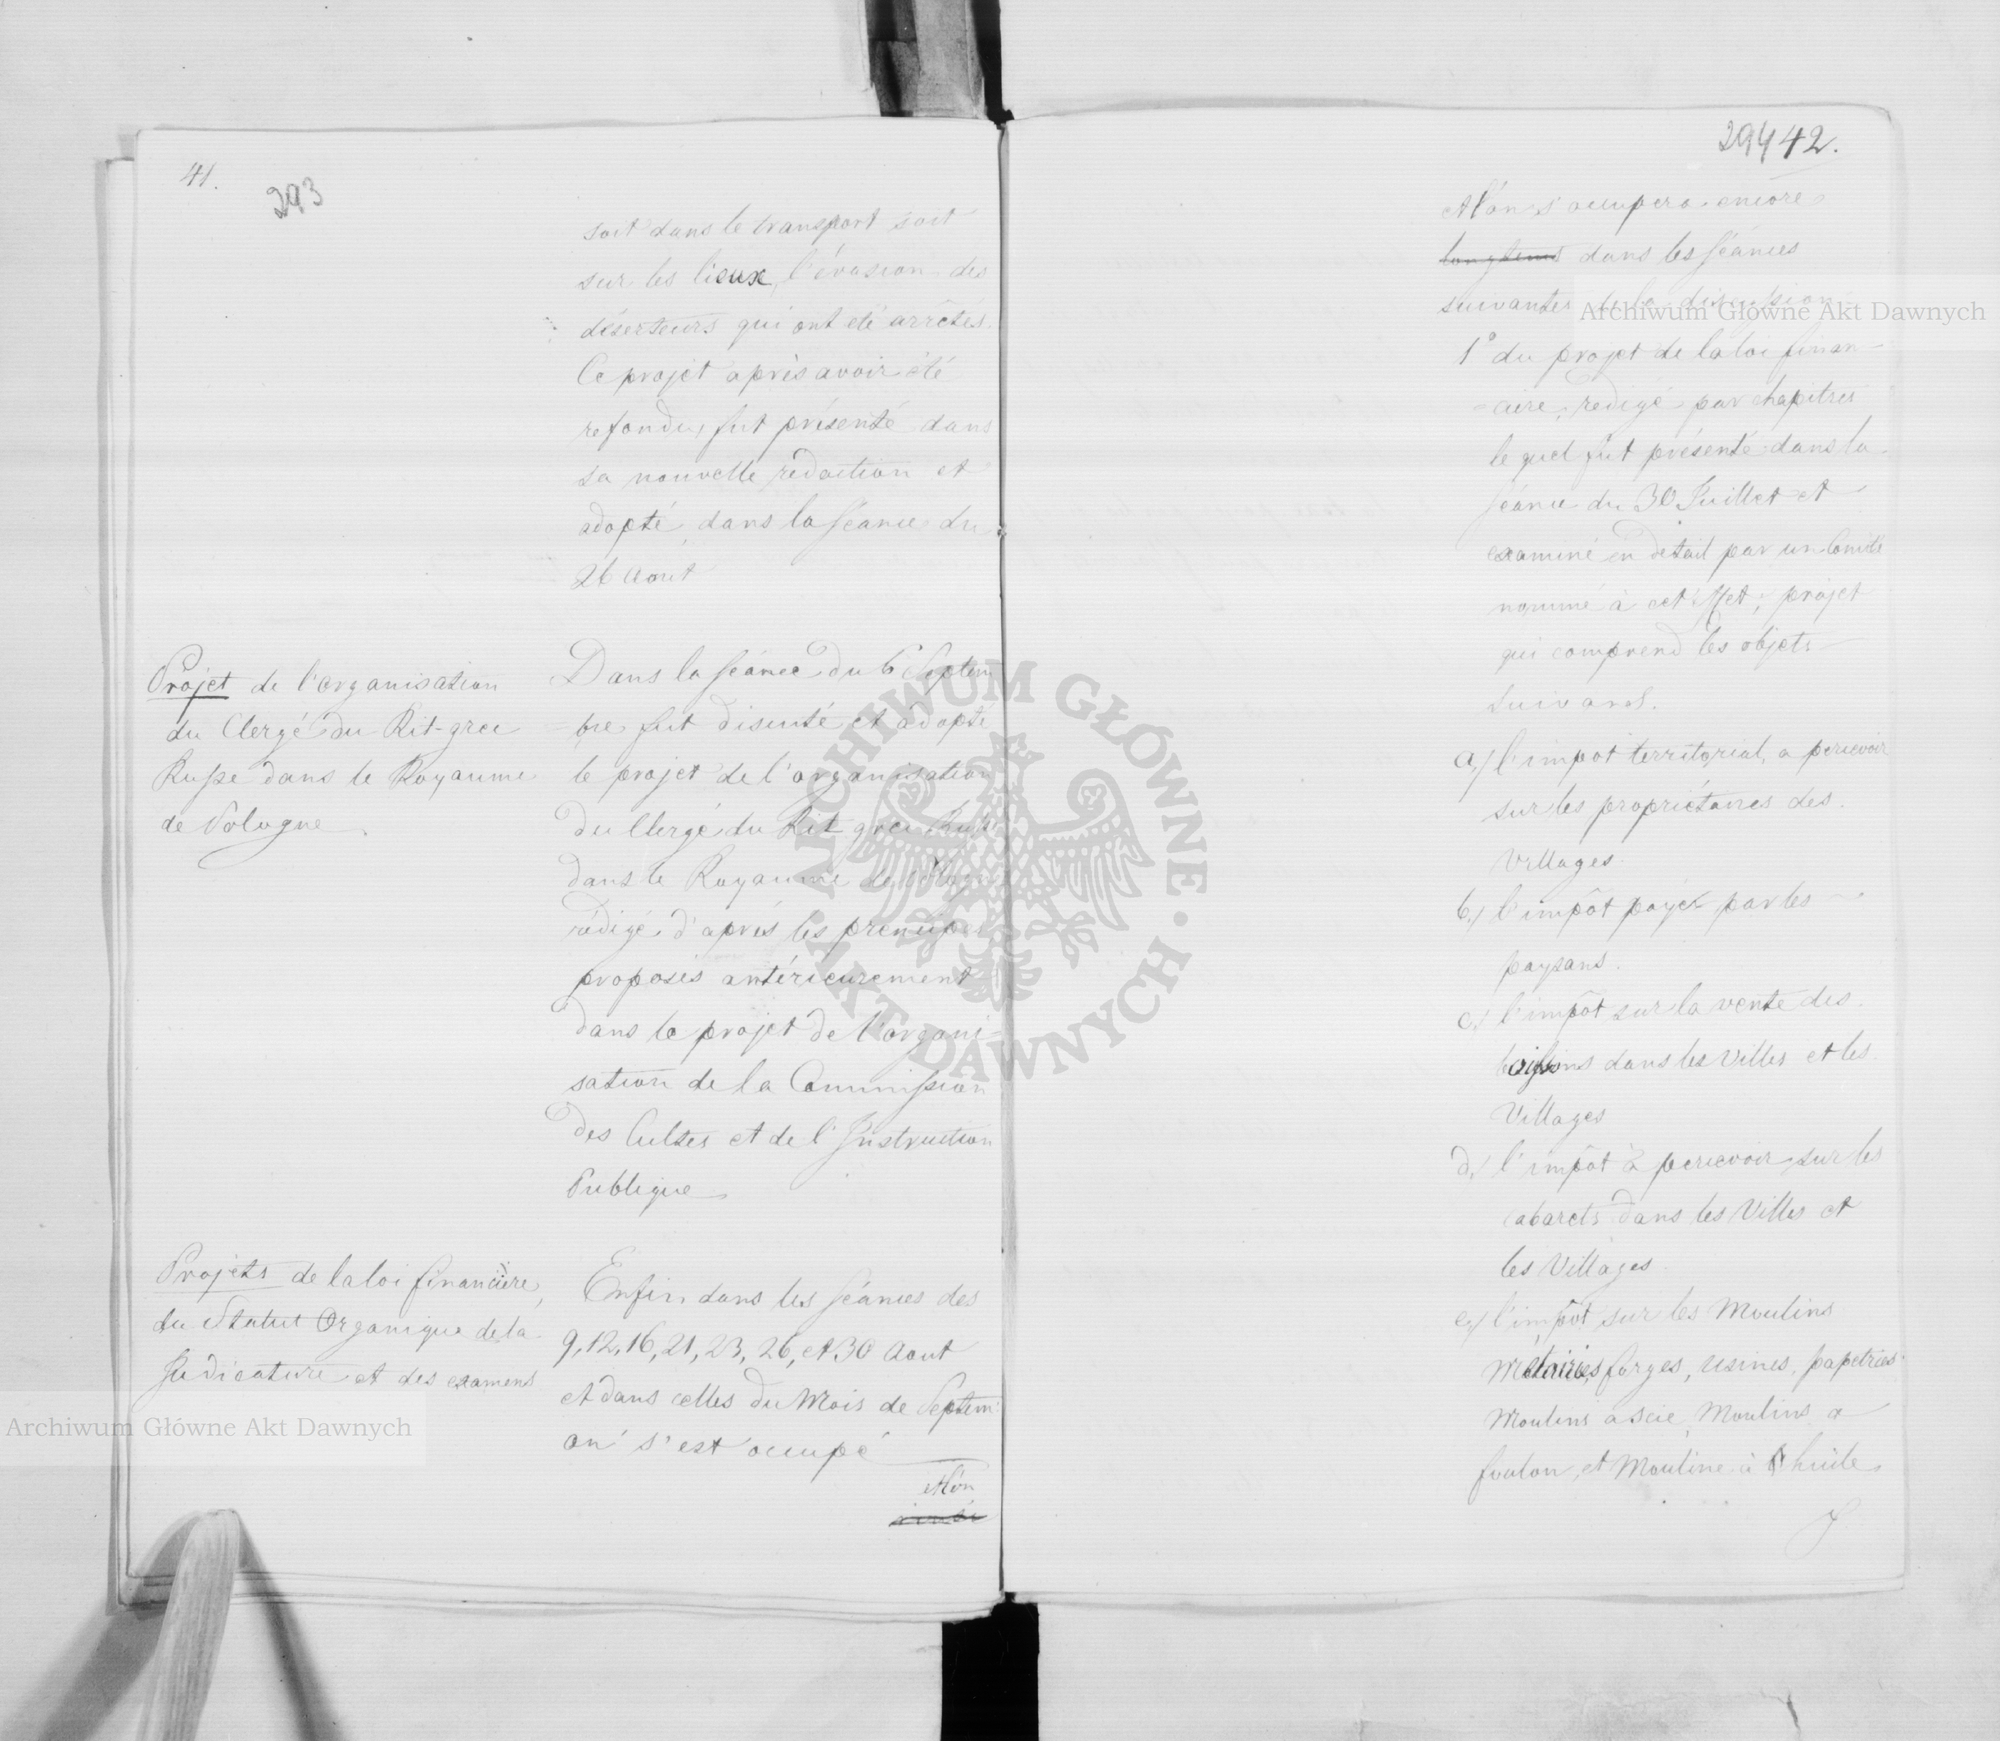 41.
293
soit dans le transport soit
sur les lieux, l'évasion des
déserteurs qui ont été arrêtés.
Ce projet après avoir été
refondu, fut présenté dans
sa nouvelle rédaction et
adopté, dans la Séance du
26 Aout
Projet de l'organisation
du Clergé du Rit-grec
Russe dans le Royaume
de Pologne.
Dans la Séance du 6 Septem
=bre fut discuté et adopté
le projet de l'organisation
du Clergé du Rit grec Russe
dans le Royaume de Pologne
rédigé d'après les principes
proposés antérieurement
dans le projet de l'organi-
sation de la Commission
des Cultes et de l'Instruction
Publique.
Projets de la loi financière,
du Statut Organique de la
Judicature et des examens
Enfin dans les Séances des
9, 12, 16, 21, 23, 26, et 30 Aout
et dans celles du Mois de Septem:
on s'est occupé
et l'on
29442.
et l'on s'occupera encore
longtems dans les Séances
suivantes de la discussion
1° du projet de la loi finan-
=cière, redigé par chapitres
le quel fut présenté dans la
Séance du 30 Juillet et
examiné en détail par un Comité
nommé à cet effet; projet
qui comprend les objets
suivans.
a,) l'impôt territorial, a percevoir
sur les propriétaires des
Villages
b,) l'impôt payé par les
paysans.
c,) l'impôt sur la vente des
boissons dans les Villes et les
Villages
d,) l'impôt à percevoir sur les
cabarets dans les Villes et
les Villages.
e,) l'impôt sur les Moulins
Métairies, forges, usines, papetries
Moulins a scie, Moulins a
foulon, et Moulins à huile
Archiwum Główne Akt Dawnych
Archiwum Główne Akt Dawnych
ARCHIWUM GŁÓWNE · AKT DAWNYCH ·